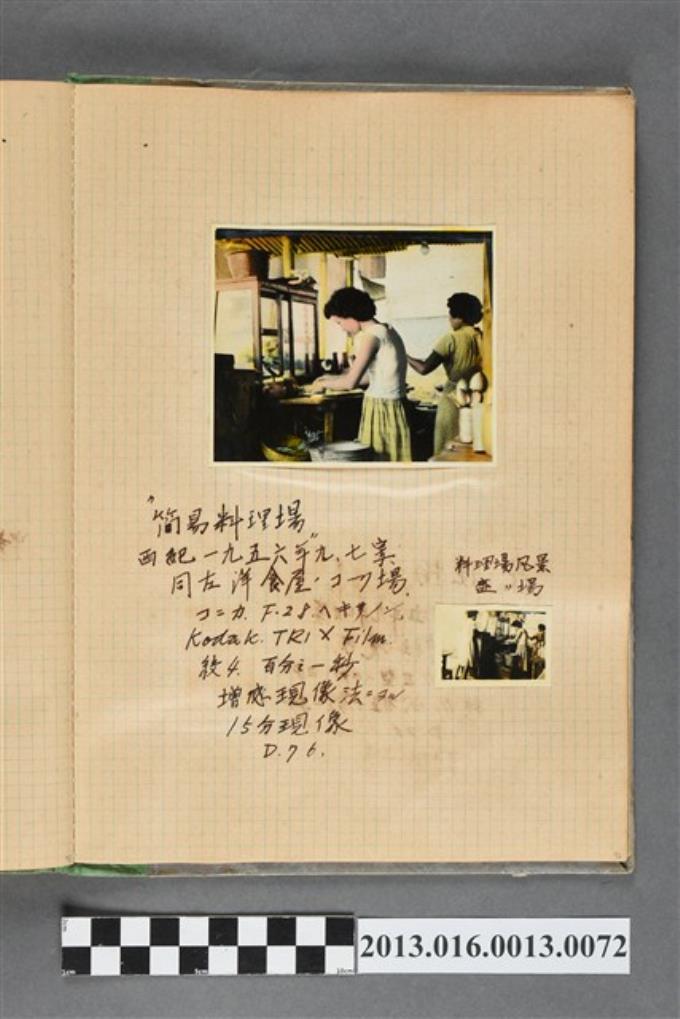 "簡易料理場"
西紀一九五六年九、七寫
同左洋食屋、コック場
コニカ F.2.8.ヘキサノン
Kodak. TRI X Film.
絞4. 百分之一秒
增感現像法ニヨル
15分現像
D.76.
料理場風景
〃場
2013.016.0013.0072